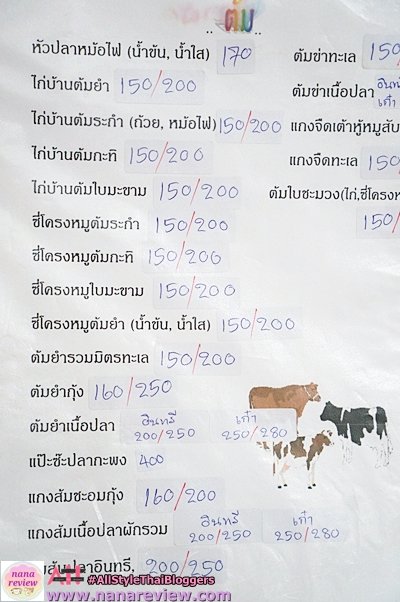 .. ต้ม ..
หัวปลาหม้อไฟ (น้ำข้น, น้ำใส) 170
ไก่บ้านต้มยำ 150/200
ไก่บ้านต้มระกำ (ถ้วย, หม้อไฟ) 150/200
ไก่บ้านต้มกะทิ 150/200
ไก่บ้านต้มใบมะขาม 150/200
ซี่โครงหมูต้มระกำ 150/200
ซี่โครงหมูต้มกะทิ 150/200
ซี่โครงหมูใบมะขาม 150/200
ซี่โครงหมูต้มยำ (น้ำข้น, น้ำใส) 150/200
ต้มยำรวมมิตรทะเล 150/200
ต้มยำกุ้ง 160/250
ต้มยำเนื้อปลา อินทรี 200/250 เก๋า 250/280
แป๊ะซ๊ะปลากะพง 400
แกงส้มชะอมกุ้ง 160/200
แกงส้มเนื้อปลาผักรวม อินทรี 200/250 เก๋า 250/280
ส้มปลาอินทรี, 200/250
ต้มข่าทะเล 150
ต้มข่าเนื้อปลา เก๋า
แกงจืดเต้าหู้หมูสับ
แกงจืดทะเล 150
ต้มใบชะมวง(ไก่,ซี่โครงห
150/
nana review
#AllStyleThaiBloggers
www.nanareview.com